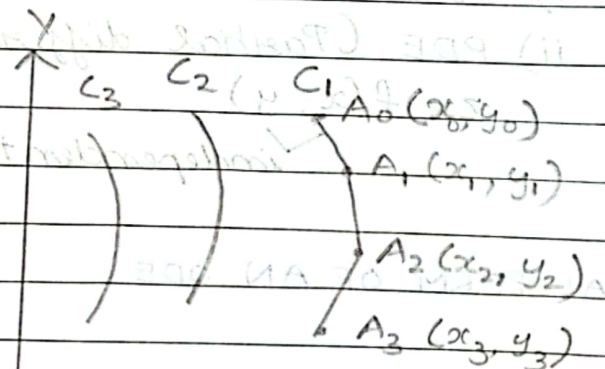 Y
C3 C2 C1
A0 (x0, y0)
A1 (x1, y1)
A2 (x2, y2)
A3 (x3, y3)